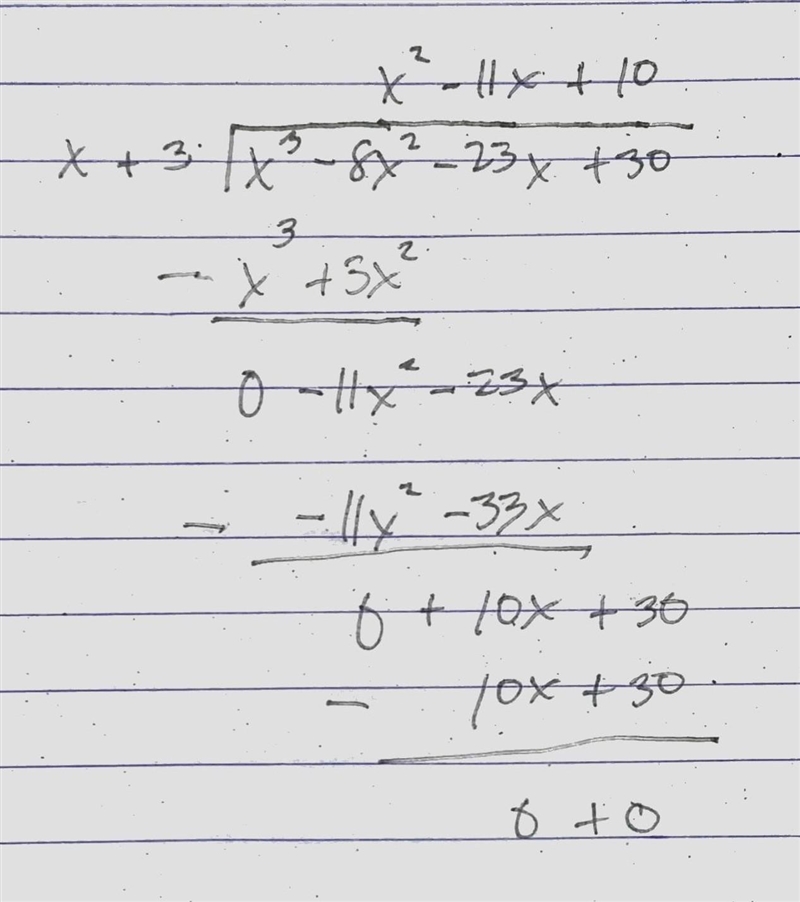 x² - 11x + 10
x + 3 | x³ - 8x² - 23x + 30
- x³ + 3x²
0 - 11x² - 23x
- -11x² - 33x
0 + 10x + 30
- 10x + 30
0 + 0